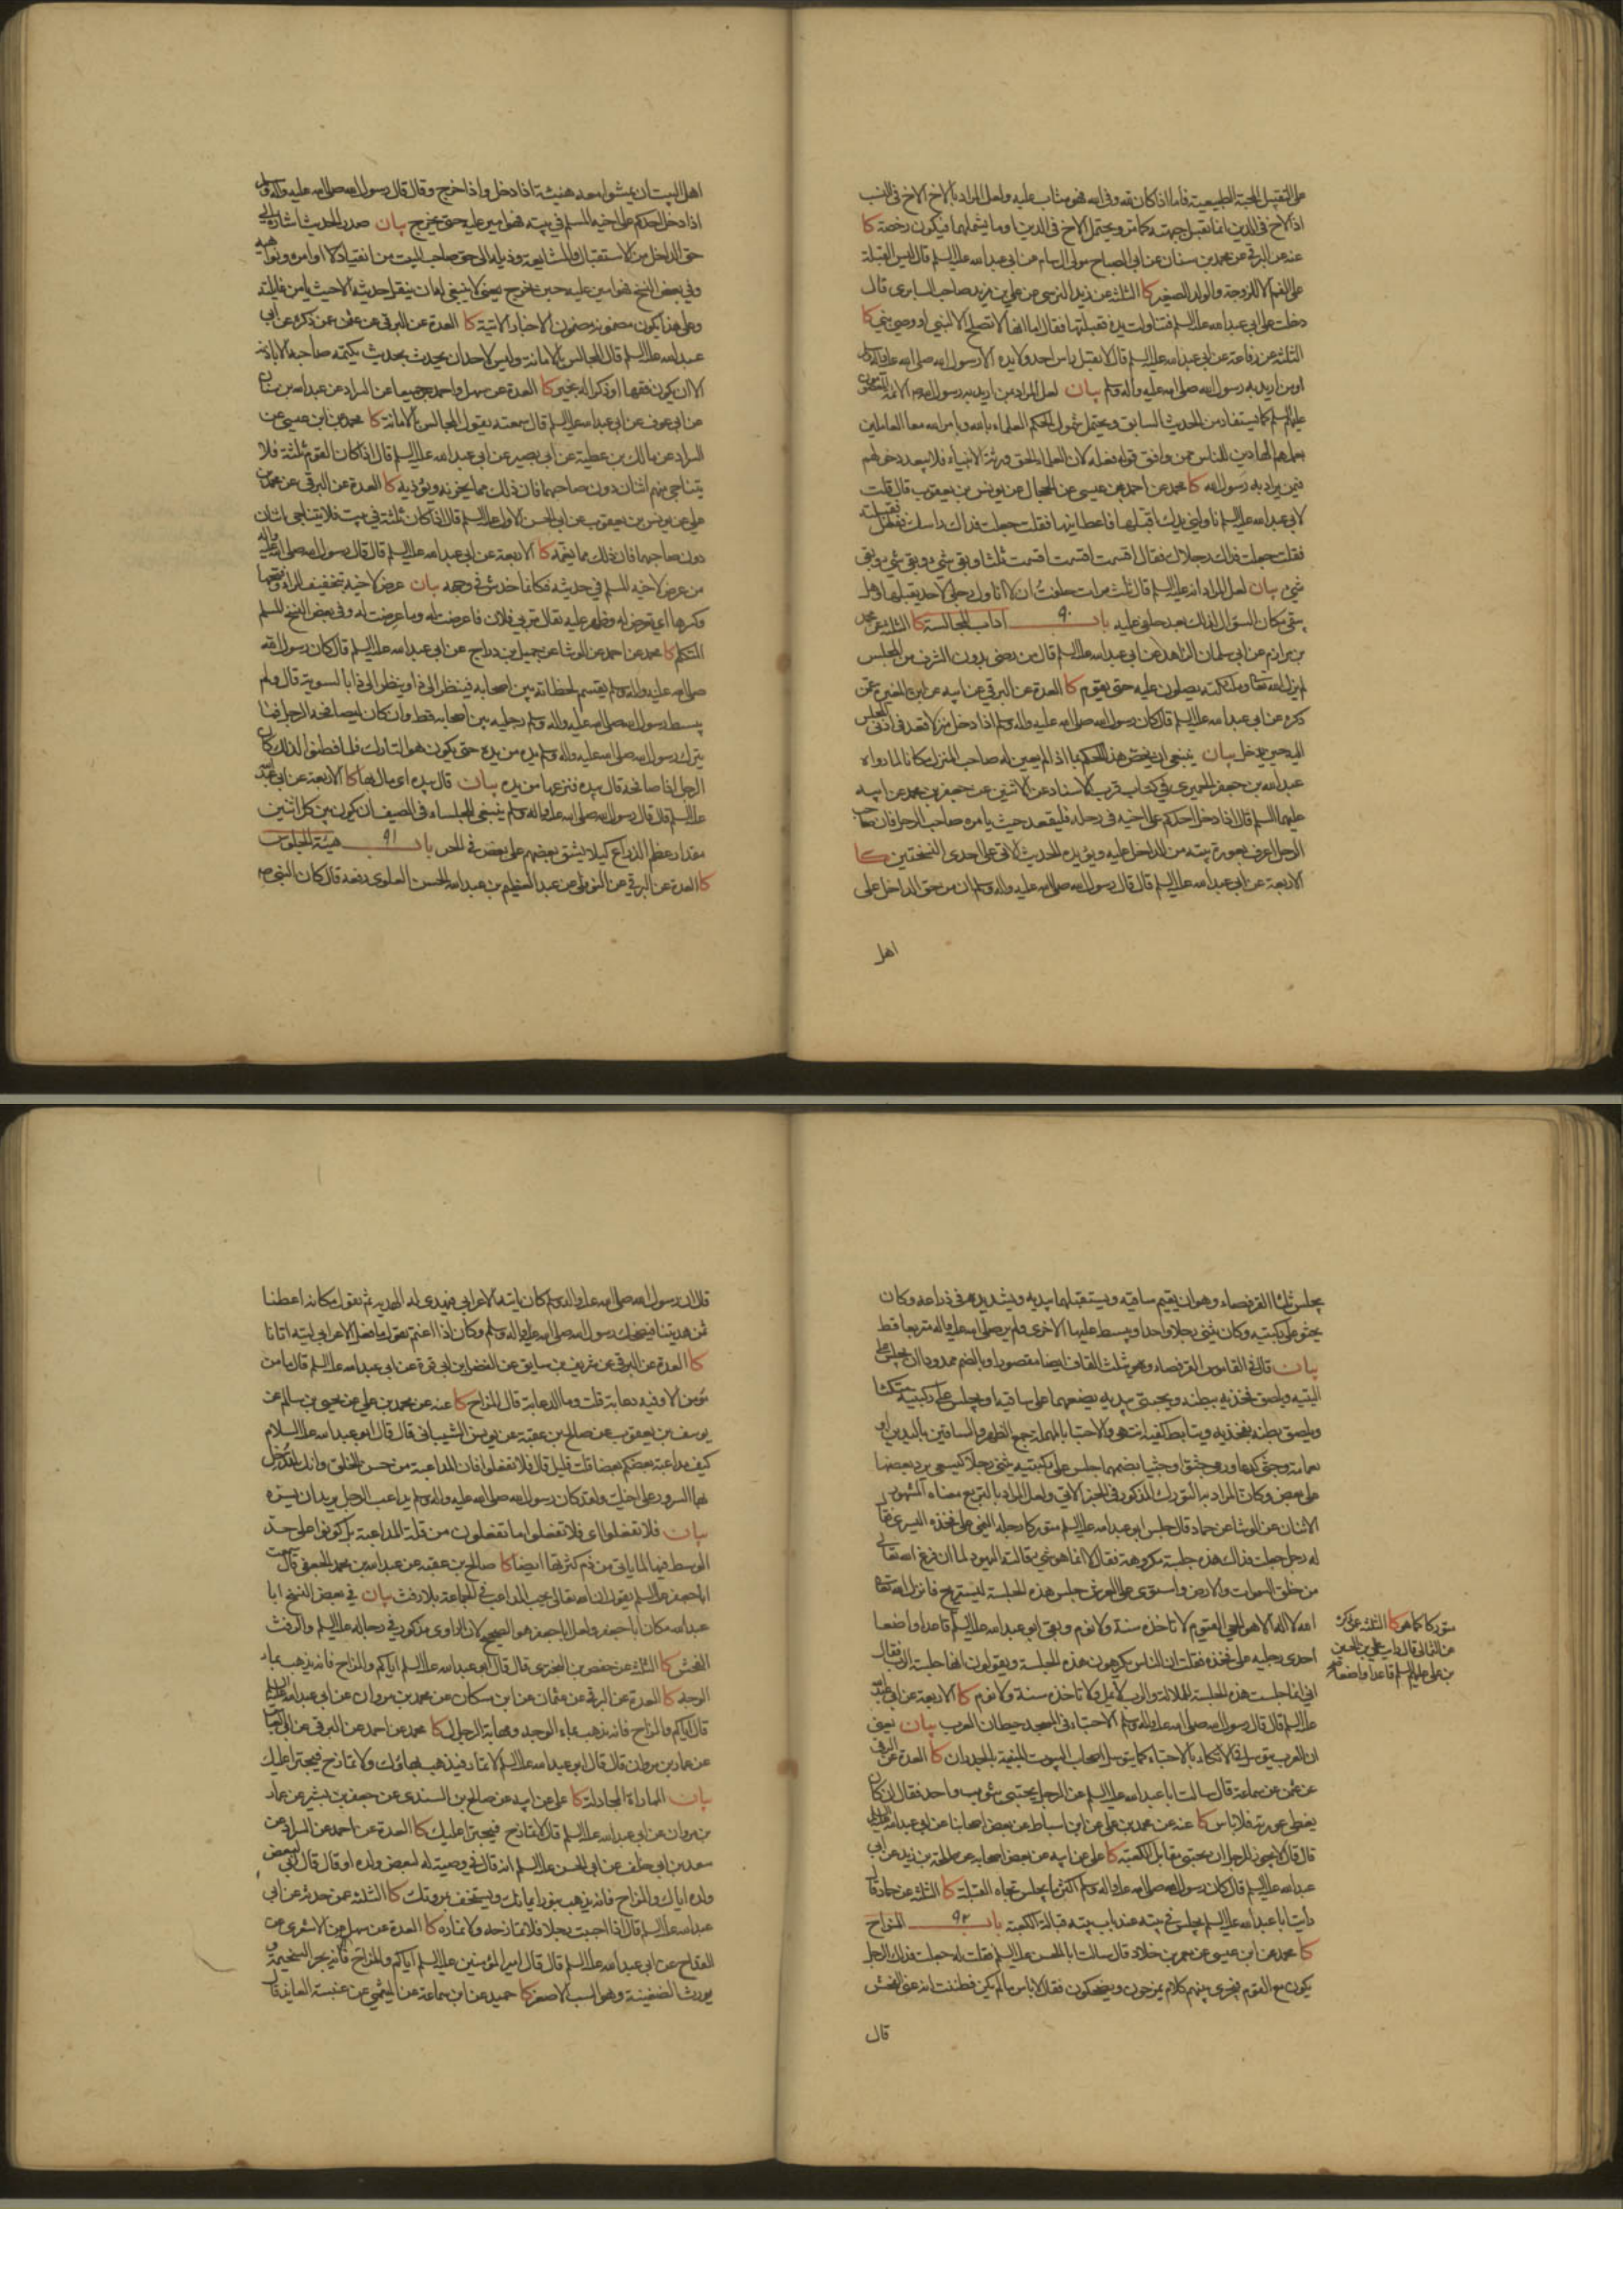 على التقبيل للمحبة الطبيعية فاما اذا كان لله وفي الله فهو مثاب عليه ولعل المراد بالاخ الاخ في النسب
اذ الاخ في الدين انما تقبل جبهته كما مر ويحتمل الاخ في الدين او ما يشملهما فيكون رخصة كا
عنه عن البرقي عن محمد بن سنان عن ابي الصباح مولى ال سام عن ابي عبد الله عليه السلم قال ليس القبلة
على الفم الا للزوجة والولد الصغير كا الثلثة عن زيد النرسي عن علي بن مزيد صاحب السابري قال
دخلت على ابي عبد الله عليه السلم فتناولت يده فقبلتها فقال اما انها لا تصلح الا لنبي او وصي نبي كا
الثلثة عن رفاعة عن ابي عبد الله عليه السلم قال لا يقبل راس احد ولا يده الا رسول الله صلى الله عليه واله وسلم
او من اريد به رسول الله صلى الله عليه واله وسلم بيان لعل المراد بمن اريد به رسول الله ص الائمة المعصومون
عليهم السلم كما يستفاد من الحديث السابق ويحتمل شمول الحكم العلماء بالله وبامر الله معا العاملين
بعلمهم الهادين للناس ممن وافق قوله فعله لان العلماء الحق ورثة الانبياء فلا يبعد دخولهم
فيمن يراد به رسول الله كا محمد عن احمد بن عيسى عن الحجال عن يونس بن يعقوب قال قلت
لابي عبد الله عليه السلم ناولني يدك اقبلها فاعطانيها فقلت جعلت فداك راسك ففعل فقبلته
فقلت جعلت فداك رجلاك فقال اقسمت اقسمت اقسمت ثلثا وبقي شيء وبقي شيء وبقي
شيء بيان لعل المراد انه عليه السلم قال ثلث مرات حلفت ان لا اناول رجلي لاحد يقبلها وهل
بقي مكان السؤال لذلك بعد حلفي عليه باب ٩٠ اداب المجالسة كا الثلثة عن محمد
بن مرازم عن ابي سليمان الزاهد عن ابي عبد الله عليه السلم قال من رضي بدون الشرف من المجلس
لم يزل الله تعالى وملائكته يصلون عليه حتى يقوم كا العدة عن البرقي عن ابيه عن ابن المغيرة عمن
ذكره عن ابي عبد الله عليه السلم قال كان رسول الله صلى الله عليه واله وسلم اذا دخل منزلا قعد في ادنى المجلس
اليه حين يدخل بيان ينبغي ان يخص هذا الحكم بما اذا لم يعين له صاحب المنزل مكانا لما رواه
عبد الله بن جعفر الحميري في كتاب قرب الاسناد عن الاثنين عن جعفر بن محمد عن ابيه
عليهما السلم قال اذا دخل احدكم على اخيه في رحله فليقعد حيث يامره صاحب الرحل فان صاحب
الرحل اعرف بعورة بيته من الداخل عليه ويؤيده الحديث الاتي على احدى النسختين كا
الاربعة عن ابي عبد الله عليه السلم قال قال رسول الله صلى الله عليه واله وسلم ان من حق الداخل على
اهل
اهل البيت ان يمشوا معه هنيئة اذا دخل واذا خرج وقال قال رسول الله صلى الله عليه واله وسلم
اذا دخل احدكم على اخيه المسلم في بيته فهو امير عليه حتى يخرج بيان صدر الحديث اشارة الى
حق الداخل من الاستقبال والمشايعة وذيله الى حق صاحب البيت من انقياد لاوامره ونواهيه
وفي بعض النسخ فهو امين عليه حين يخرج يعني لا ينبغي له ان ينقل حديثه الا حيث يامن غائلته
وعلى هذا يكون مضمونه مضمون الاخبار الاتية كا العدة عن البرقي عن عثمن عن ذكره عن ابي
عبد الله عليه السلم قال المجالس بالامانة وليس لاحد ان يحدث بحديث يكتمه صاحبه الا باذنه
الا ان يكون فقها او ذكرا له بخير كا العدة عن سهل واحمد جميعا عن السراد عن عبد الله بن سنان
عن ابي عوف عن ابي عبد الله عليه السلم قال سمعته يقول المجالس بالامانة كا محمد عن ابن عيسى عن
السراد عن مالك بن عطية عن ابي بصير عن ابي عبد الله عليه السلم قال اذا كان القوم ثلثة فلا
يتناجى منهم اثنان دون صاحبهما فان ذلك مما يحزنه ويؤذيه كا العدة عن البرقي عن محمد بن
علي عن يونس بن يعقوب عن ابي الحسن الاول عليه السلم قال اذا كان ثلثة في بيت فلا يتناجى اثنان
دون صاحبهما فان ذلك مما يغمه كا الاربعة عن ابي عبد الله عليه السلم قال قال رسول الله صلى الله عليه واله
من عرض لاخيه المسلم في حديثه فكانما خدش في وجهه بيان عرض لاخيه بتخفيف الراء وفتحها
وكسرها اي تعرض له وظهر عليه يقال مر بي فلان فما عرضت له وما عرضت له وفي بعض النسخ المسلم
المتكلم كا محمد عن احمد عن الوشا عن جميل بن دراج عن ابي عبد الله عليه السلم قال كان رسول الله
صلى الله عليه واله وسلم يقسم لحظاته بين اصحابه فينظر الى ذا وينظر الى ذا بالسوية قال ولم
يبسط رسول الله صلى الله عليه واله وسلم رجليه بين اصحابه قط وان كان ليصافحه الرجل فما
يترك رسول الله صلى الله عليه واله وسلم يده من يده حتى يكون هو التارك فلما فطنوا لذلك كان
الرجل اذا صافحه قال بيده فنزعها من يده بيان قال بيده اي مال بها كا الاربعة عن ابي عبد الله
عليه السلم قال قال رسول الله صلى الله عليه واله وسلم ينبغي للجلساء في الصيف ان يكون بين كل اثنين
مقدار عظم الذراع كيلا يشق بعضهم على بعض في الحر باب ٩١ هيئة الجلوس
كا العدة عن البرقي عن النوفلي عن عبد العظيم بن عبد الله الحسن العلوي رفعه قال كان النبي ص
يجلس ثلثا القرفصاء وهو ان يقيم ساقيه ويستقبلهما بيديه ويشد يده في ذراعه وكان
يجثو على ركبتيه وكان يثني رجلا واحدا ويبسط عليها الاخرى ولم ير صلى الله عليه واله متربعا قط
بيان قال في القاموس القرفصاء وهو مثلث القاف ايضا مقصورا وبالضم ممدودا ان يجلس على
اليتيه ويلصق فخذيه ببطنه ويحتبي بيديه يضعهما على ساقيه او يجلس على ركبتيه متكئا
ويلصق بطنه بفخذيه ويتابط كفيه انتهى والاحتباء بالمهملة جمع الظهر والساقين باليدين او
بعمامة وجثى كدعا ورمى جثوا وجثيا بضمهما جلس على ركبتيه يثني رجلا كيسعى يرد بعضها
على بعض وكان المراد به التورك المذكور في الخبر الاتي ولعل المراد بالتربع معناه المشهور
الاثنان عن الوشا عن حماد قال جلس ابو عبد الله عليه السلم متوركا رجله اليمنى على فخذه اليسرى فقال
له رجل جعلت فداك هذه جلسة مكروهة فقال لا انما هو شيء قالته اليهود لما ان فرغ الله تعالى
من خلق السموات والارض واستوى على العرش جلس هذه الجلسة ليستريح فانزل الله تعالى
الله لا اله الا هو الحي القيوم لا تاخذه سنة ولا نوم وبقي ابو عبد الله عليه السلم قاعدا واضعا
احدى رجليه على فخذه فقلت ان الناس يكرهون هذه الجلسة ويقولون انها جلسة الرب فقال
اني انما جلست هذه الجلسة للملالة والرب لا يمل ولا تاخذه سنة ولا نوم كا الاربعة عن ابي عبد الله
عليه السلم قال قال رسول الله صلى الله عليه واله وسلم الاحتباء في المسجد حيطان العرب بيان يعني
ان العرب يتوسل في الاتكاء بالاحتباء كما يتوسل اصحاب البيوت المبنية بالجدران كا العدة عن البرقي
عن عثمن عن سماعة قال سالت ابا عبد الله عليه السلم عن الرجل يحتبي بثوب واحد فقال ان كان
يغطي عورته فلا باس كا عنه عن محمد بن علي عن ابن اسباط عن بعض اصحابنا عن ابي عبد الله عليه السلم
قال قال لا يجوز للرجل ان يحتبي مقابل الكعبة كا علي عن ابيه عن بعض اصحابه عن طلحة بن زيد عن ابي
عبد الله عليه السلم قال كان رسول الله صلى الله عليه واله وسلم اكثر ما يجلس تجاه القبلة كا الثلثة عن حماد قال
رايت ابا عبد الله عليه السلم يجلس في بيته عند باب بيته قبالة الكعبة باب ٩٢ المزاح
كا محمد عن ابن عيسى عن معمر بن خلاد قال سالت ابا الحسن عليه السلم فقلت له جعلت فداك الرجل
يكون مع القوم فيجري بينهم كلام يمزحون ويضحكون فقال لا باس ما لم يكن فظننت انه عنى الفحش
قال
كا الثلثة
عن الثمالي قال رايت علي بن الحسين
بن علي عليهم السلم قاعدا واضعا
قال ان رسول الله صلى الله عليه واله وسلم كان ياتيه الاعرابي فيهدي له الهدية ثم يقول مكانه اعطنا
ثمن هديتنا فيضحك رسول الله صلى الله عليه واله وسلم وكان اذا اغتم يقول ما فعل الاعرابي ليته اتانا
كا العدة عن البرقي عن شريف بن سابق عن الفضل بن ابي قرة عن ابي عبد الله عليه السلم قال ما من
مؤمن الا وفيه دعابة قلت وما الدعابة قال المزاح كا عنه عن محمد بن علي عن يحيى بن سلام عن
يوسف بن يعقوب عن صالح بن عقبة عن يونس الشيباني قال قال ابو عبد الله عليه السلام
كيف مداعبة بعضكم بعضا قلت قليل قال فلا تفعلوا فان المداعبة من حسن الخلق وانك لتدخل
بها السرور على اخيك ولقد كان رسول الله صلى الله عليه واله وسلم يداعب الرجل يريد ان يسره
بيان فلا تفعلوا اي فلا تفعلوا ما تفعلون من قلة المداعبة بل كونوا على حد
الوسط فيها لما ياتي من ذم كثرتها ايضا كا صالح بن عقبة عن عبد الله بن محمد الجعفي قال سمعت
ابا جعفر عليه السلم يقول ان الله تعالى يحب المداعب في الجماعة بلا رفث بيان في بعض النسخ ابا
عبد الله مكان ابا جعفر ولعل ابا جعفر هو الصحيح لان الراوي مذكور في رجاله عليه السلم والرفث
الفحش كا الثلثة عن حفص بن البختري قال قال ابو عبد الله عليه السلم اياكم والمزاح فانه يذهب بماء
الوجه كا العدة عن البرقي عن عثمان عن ابن مسكان عن محمد بن مروان عن ابي عبد الله عليه السلم
قال اياكم والمزاح فانه يذهب بماء الوجه ومهابة الرجال كا محمد عن احمد عن البرقي عن ابي العباس
عن عمار بن مروان قال قال ابو عبد الله عليه السلم لا تمار فيذهب بهاؤك ولا تمازح فيجترا عليك
بيان المماراة المجادلة كا علي عن ابيه عن صالح بن السندي عن جعفر بن بشير عن عمار
بن مروان عن ابي عبد الله عليه السلم قال لا تمازح فيجترا عليك كا العدة عن احمد عن السراد عن
سعد بن ابي خلف عن ابي الحسن عليه السلم انه قال في وصية له لبعض ولده او قال قال ابي لبعض
ولده اياك والمزاح فانه يذهب بنور ايمانك ويستخف بمروتك كا الثلثة عمن حدثه عن ابي
عبد الله عليه السلم قال اذا احببت رجلا فلا تمازحه ولا تماره كا العدة عن سهل عن الاشعري عن
القداح عن ابي عبد الله عليه السلم قال قال امير المؤمنين عليه السلم اياكم والمزاح فانه يجر السخيمة و
يورث الضغينة وهو السب الاصغر كا حميد عن ابن سماعة عن الميثمي عن عنبسة العابد قال